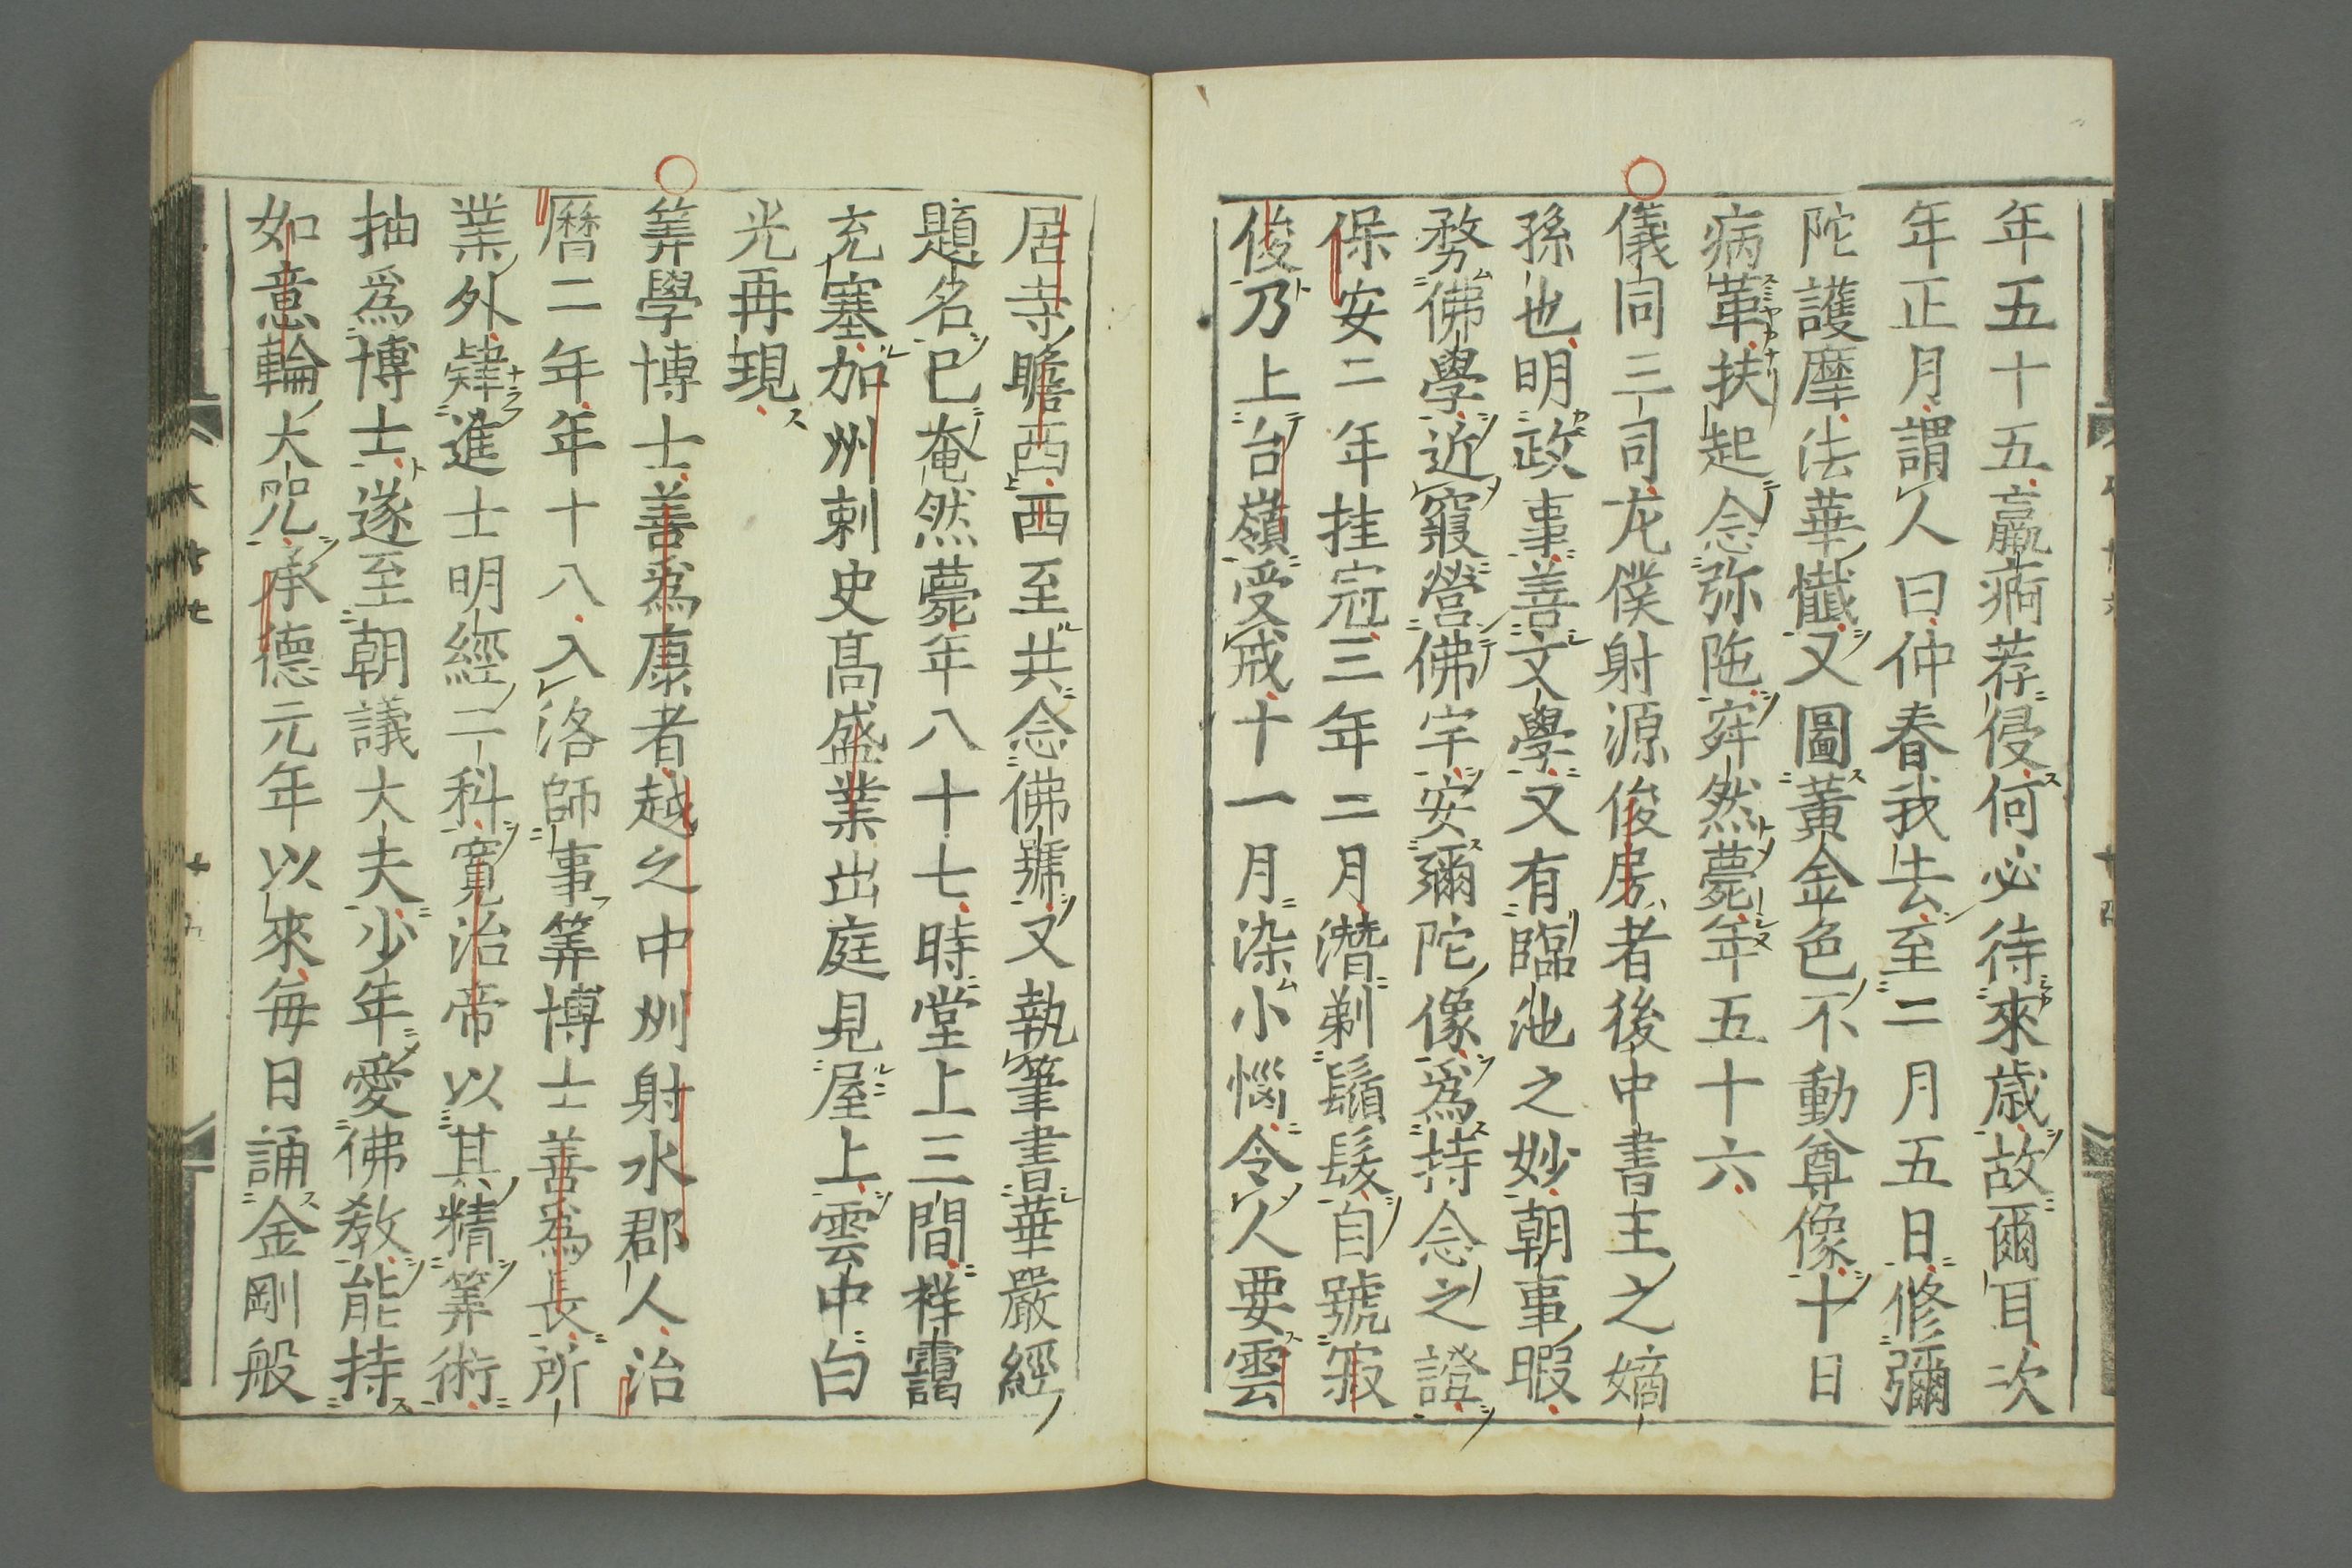 年五十五羸痾荐侵何必待來歳故爾耳次
年正月謂人曰仲春我去至二月五日修彌
陀護摩法華懺又圖黃金色不動尊像十日
病革扶起念弥陁窣然薨年五十六
儀同三司尤僕射源俊房者後中書主之嫡
孫也明政事善文學又有臨池之妙朝事暇
務佛學近寢營佛宇安彌陀像爲持念之證
保安二年挂冠三年二月潛剃鬚髮自號寂
俊乃上台嶺受戒十一月染小惱令人要雲
居寺瞻西西至共念佛號又執筆書華嚴經
題名已奄然薨年八十七時堂上三間祥靄
充塞加州刺史髙盛業出庭見屋上雲中白
光再現
筭學博士善爲康者越之中州射水郡人治
曆二年年十八入洛師事筭博士善爲長所
業外肄進士明經二科寬治帝以其精筭術
抽爲博士遂至朝議大夫少年愛佛教能持
如意輪大咒承德元年以來每日誦金剛般